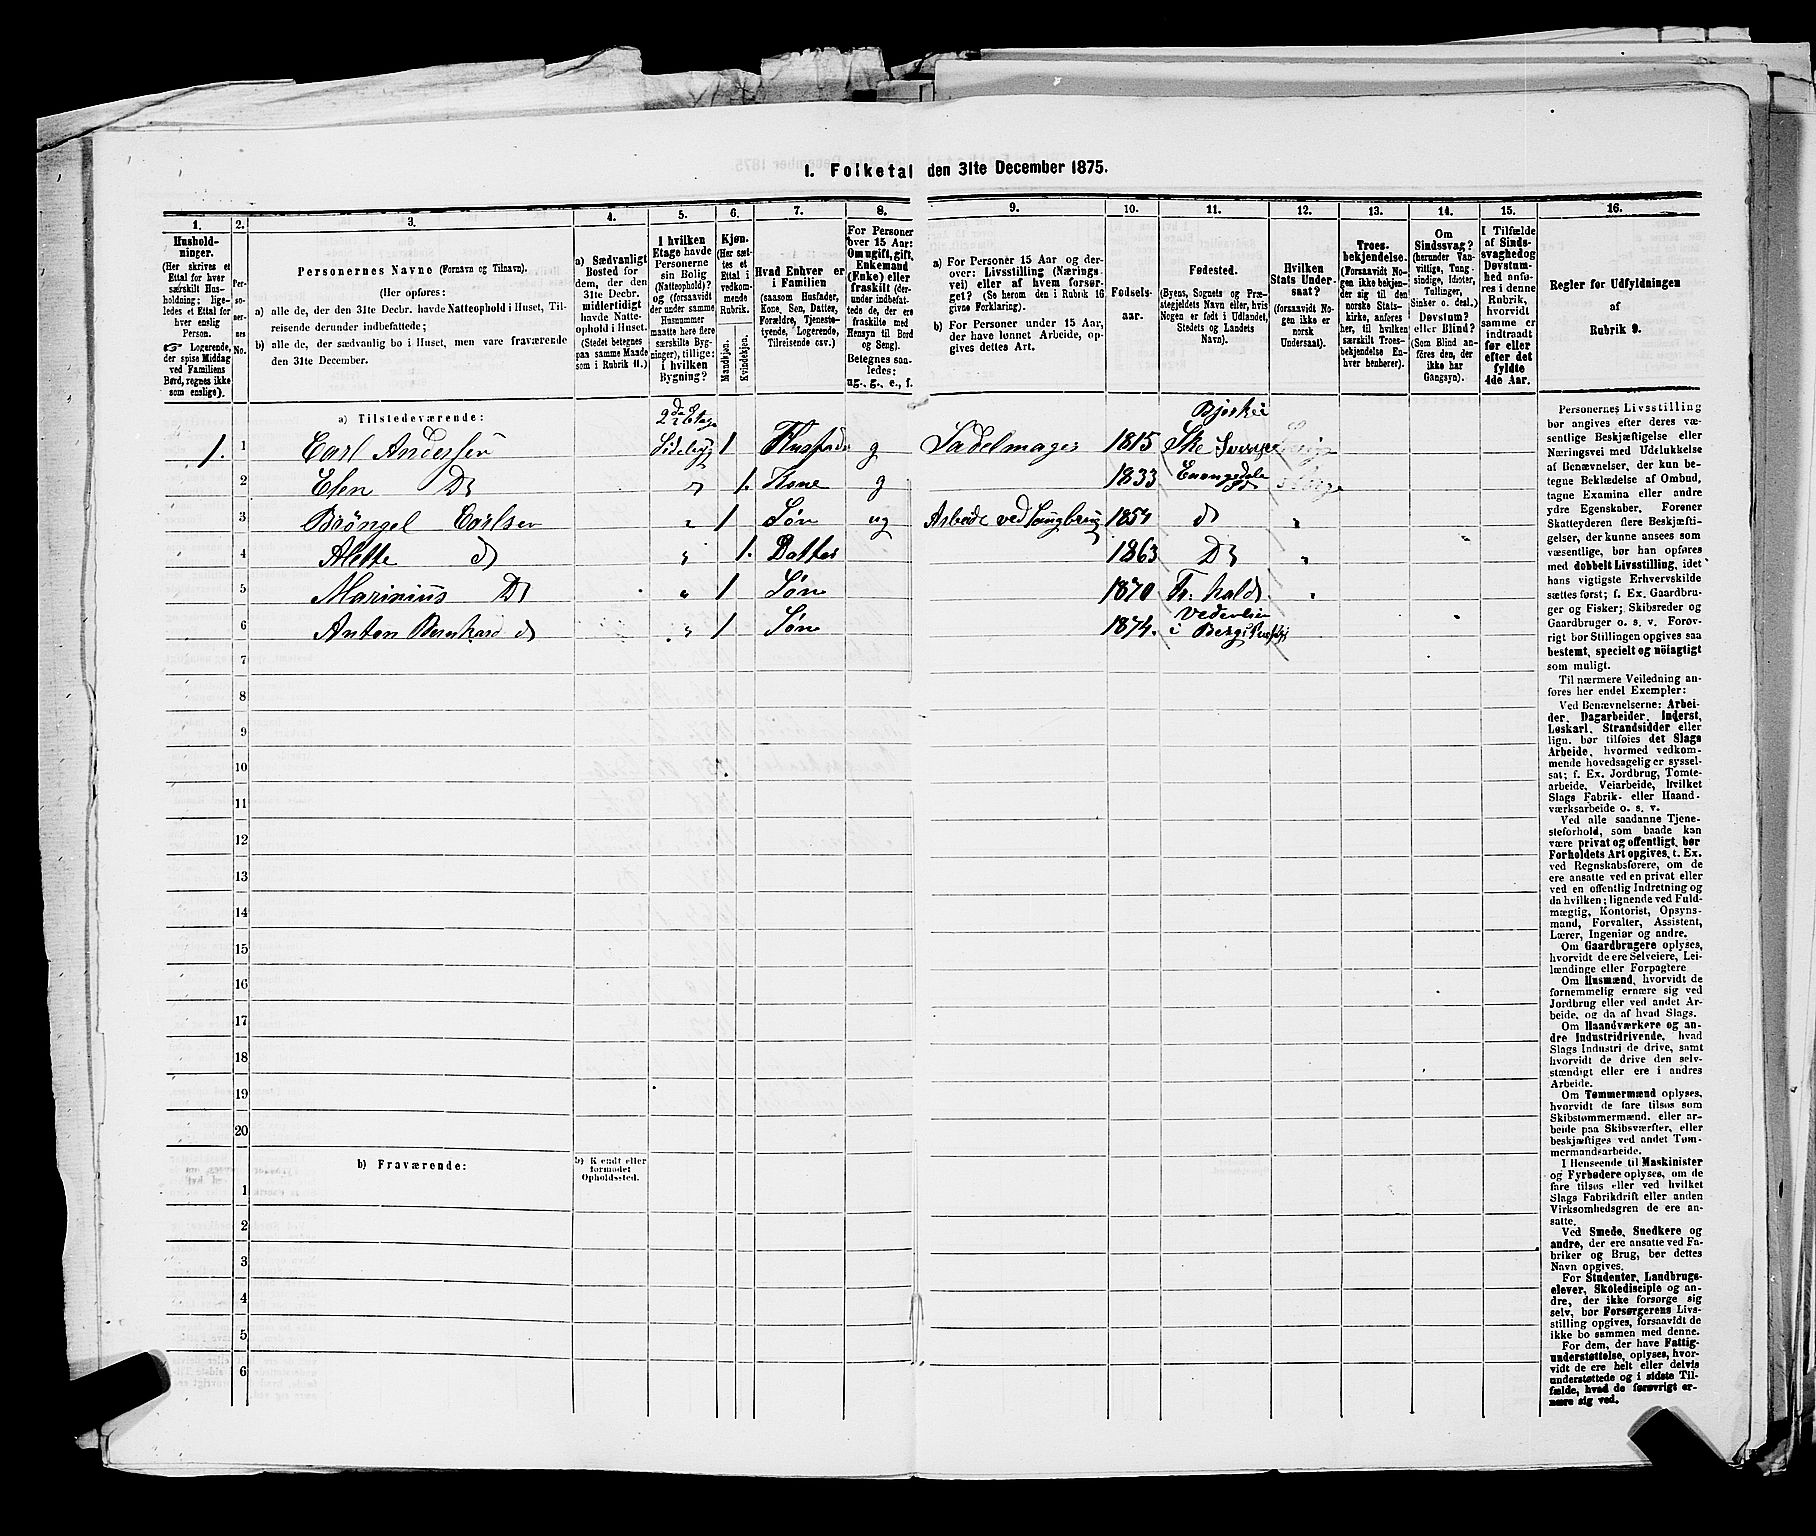 1. Folketal den 31te December 1875.
1.
Hushold-
ninger.
(Her skrives et
Ettal for hver
særskilt Hus-
holdning; lige-
ledes et Ettal for
hver enslig
Person.
☞ Logerende,
der spise Middag
ved Familiens
Bord, regnes ikke
som enslige).
2.
Per-
so-
ner-
nes
No.
3.
Personernes Navne (Fornavn og Tilnavn).
(Her opføres:
a) alle de, der den 31te Decbr. havde Natteophold i Huset, Til-
reisende derunder indbefattede;
b) alle de, der sædvanlig bo i Huset, men vare fraværende
den 31te December.
4.
a) Sædvanligt
Bosted for
dem, der den
31te Decbr.
midlertidigt
havde Natte-
ophold i Huset.
(Stedet betegnes
paa samme Maade
som i Rubrik 11.)
5.
I hvilken
Etage havde
Personerne
sin Bolig
(Natteophold)?
og (forsaavidt
der under samme
Husnummer
maatte høre flere
særskilte Byg-
ninger), tillige:
i hvilken
Bygning?
6.
Kjøn.
(Her sæt-
tes et
Ettal i
vedkom-
mende
Rubrik.
Mandkjøn.
Kvindekjøn.
7.
Hvad Enhver er
i Familien
(saasom Husfader,
Kone, Søn, Datter,
Forældre, Tjeneste-
tyende, Logerende,
Tilreisende osv.)
8.
For Personer
over 15 Aar:
Om ugift, gift,
Enkemand
(Enke) eller
fraskilt (der-
under indbefat-
tede de, der ere
fraskilte med
Hensyn til Bord
og Seng).
Betegnes saa-
ledes:
ug., g., e., f.
9.
a) For Personer 15 Aar og der-
over: Livsstilling (Nærings-
vei) eller af hvem forsør-
get? (Se herom den i Rubrik 16
givne Forklaring).
b) For Personer under 15 Aar,
der have lønnet Arbeide, op-
gives dettes Art.
10.
Fødsels-
aar.
11.
Fødested.
(Byens, Sognets og Præ-
stegjeldets Navn eller, hvis
Nogen er født i Udlandet,
Stedets og Landets
Navn).
12.
Hvilken
Stats Under-
saat?
(forsaavidt No-
gen ikke er
norsk
Undersaat).
13.
Troes-
bekjendelse.
(Forsaavidt No-
gen ikke bekjen-
der sig til den
norske Stats-
kirke, anføres
her, til hvilken
særskilt Troes-
bekjendelse En-
hver henhører).
14.
Om
Sindssvag?
(herunder Van-
vittige, Tung-
sindige, Idioter,
Tullinger,
Sinker o. desl.)
Døvstum?
eller Blind?
(Som Blind an-
føres den, der
ikke har
Gangsyn).
15.
I Tilfælde
af Sinds-
svaghed og
Døvstum-
hed anfø-
res i denne
Rubrik,
hvorvidt
samme er
indtraadt
før eller
efter det
fyldte
4de Aar.
16.
Regler for Udfyldningen
af
Rubrik 9.
a) Tilstedeværende:
1. 1 Carl Andersen 2den Etage Sidebyg 1 Husfader g Sadelmager 1815 Ske Sverige
2 Elen Do 1. Kone g 1833
3 Carlsen 1 Søn ug Arbeide ved 1857 do
4 Alette do 1. Datter 1863 Do
5 Marinius Do 1 Søn 1870 Fr. hald
6 Anton Bernhard do 1 Søn 1874. i Berg
7
8
9
10
11
12
13
14
15
16
17
18
19
20
b) Fraværende:
b) Kjendt eller
formodet
Opholdssted.
1
2
3
4
5
6
Personernes Livsstilling
bør angives efter deres væ-
sentlige Beskjæftigelse eller
Næringsvei med Udelukkelse
af Benævnelser, der kun be-
tegne Beklædelse af Ombud,
tagne Examina eller andre
ydre Egenskaber. Forener
Skatteyderen flere Beskjæfti-
gelser, der kunne ansees som
væsentlige, bør han opføres
med dobbelt Livsstilling, idet
hans vigtigste Erhvervskilde
sættes først; f. Ex. Gaardbru-
ger og Fisker; Skibsreder og
Gaardbruger o. s. v. Forøv-
rigt bør Stillingen opgives saa
bestemt, specielt og nöiagtigt
som muligt.
Til nærmere Veiledning an-
føres her endel Exempler:
Ved Benævnelserne: Arbei-
der, Dagarbeider, Inderst,
Løskarl, Strandsidder eller
lign. bør tilføies det Slags
Arbeide, hvormed vedkom-
mende hovedsagelig er syssel-
sat; f. Ex. Jordbrug, Tomte-
arbeide, Veiarbeide, hvilket
Slags Fabrik- eller Haand-
værksarbeide o. s. v.
Ved alle saadanne Tjene-
steforhold, som baade kan
være privat og offentligt, bør
Forholdets Art opgives, t. Ex.
ved Regnskabsførere, om de
ere ansatte ved en privat eller
ved en offentlig Indretning og
da hvilken; lignende ved Fuld-
mægtig, Kontorist, Opsyns-
mand, Forvalter, Assistent,
Lærer, Ingeniør og andre.
Om Gaardbrugere oplyses,
hvorvidt de ere Selveiere, Lei-
lændinge eller Forpagtere
Om Husmænd, hvorvidt de
fornemmelig ernære sig ved
Jordbrug eller ved andet Ar-
beide, og da af hvad Slags.
Om Haandværkere og an-
dre Industridrivende, hvad
Slags Industri de drive, samt
hvorvidt de drive den selv-
stændigt eller ere i andres
Arbeide.
Om Tømmermænd oplyses,
hvorvidt de fare tilsøs som
Skibstømmermænd, eller ar-
beide paa Skibsværfter, eller
beskjæftiges ved andet Tøm-
mermandsarbeide.
I Henseende til Maskinister
og Fyrbødere oplyses, om de
fare tilsøs eller ved hvilket
Slags Fabrikdrift eller anden
Virksomhedsgren de ere an-
satte.
Ved Smede, Snedkere og
andre, der ere ansatte ved Fa-
briker og Brug, bør dettes
Navn opgives.
For Studenter, Landbrugs-
elever, Skoledisciple og an-
dre, der ikke forsørge sig
selv, bør Forsørgerens Livs-
stilling opgives, forsaavidt de
ikke bo sammen med denne.
For dem, der have Fattig-
understøttelse, oplyses, hvor-
vidt de ere helt eller delvis
understøttede og i sidste Til-
fælde, hvad de forøvrigt er-
nære sig ved.